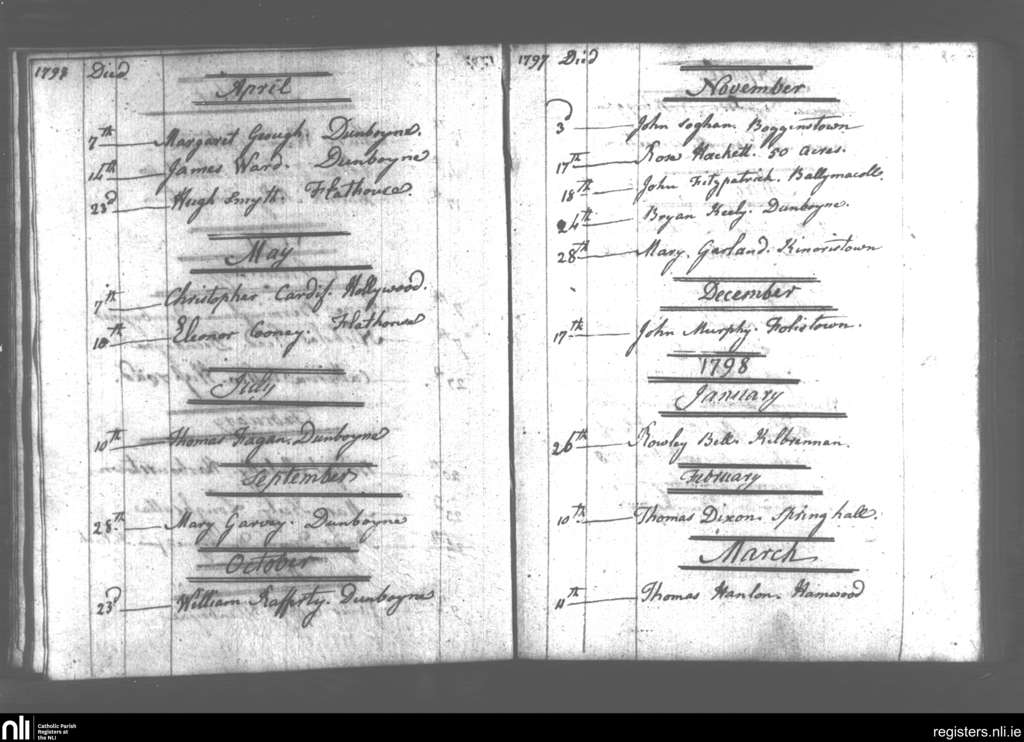 1798 Died
April
7th Margaret Geough. Dunboyne.
14th James Ward. Dunboyne
23d Hugh Smyth. Flathouse.
May
7th Christopher Cardif. Hollywood.
10th Eleonor Cooney. Flathouse
July
10th Thomas Fagan. Dunboyne
September
28th Mary Garvey. Dunboyne
October
23d William Rafferty. Dunboyne
1797 Died
November
3d John soghan. Bogginstown
17th Rose Hackett. 50 acres.
18th John Fitzpatrick. Ballymacoll.
24th Bryan Keely. Dunboyne.
28th Mary. Garland. Kinoristown
December
17th John Murphy. Folistown.
1798
January
26th Rowley Bell. Kilbrennan.
February
10th Thomas Dixon. Springhall.
March
11th Thomas Hanlon. Hamwood
nli Catholic Parish
Registers at
the NLI
registers.nli.ie